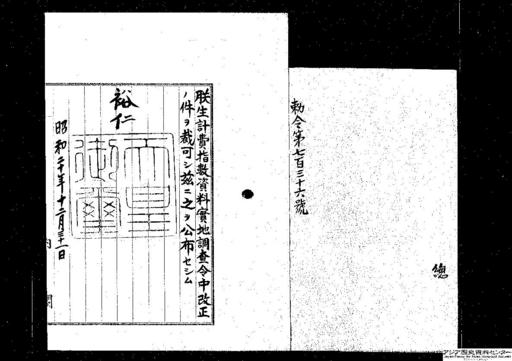 総
勅令第七百三十六號
朕生計費指數資料實地調査令中改正
ノ件ヲ裁可シ茲ニ之ヲ公布セシム
裕仁
天皇御璽
昭和二十年十二月三十一日
内閣
アジア歴史資料センター